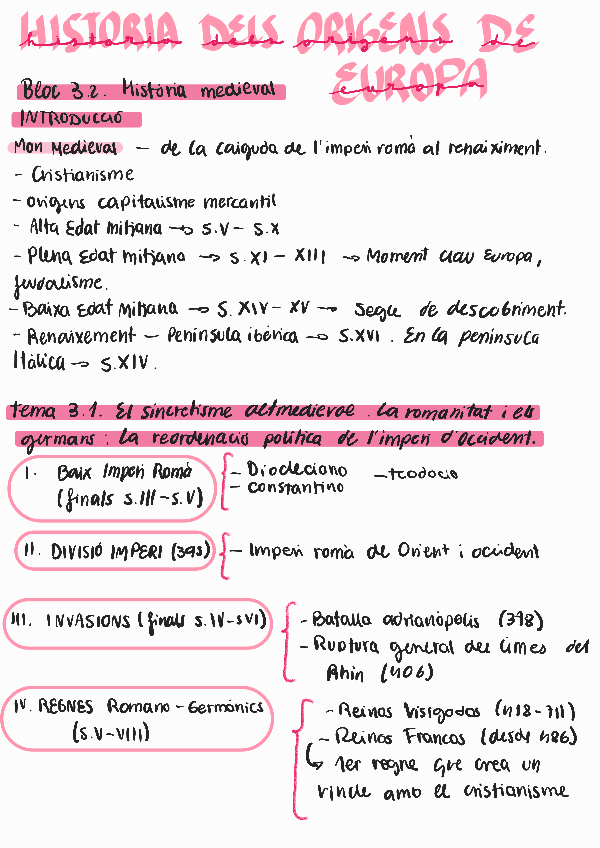 HISTORIA DELS ORIGENS DE
historia dels origens de
EUROPA
europa
Bloc 3.2. Història medieval
INTRODUCCIÓ
Mon Medieval — de la caiguda de l'imperi romà al renaiximent.
- Cristianisme
- origens capitalisme mercantil
- Alta Edat Mitjana → s.V – s.X
- Plena Edat mitjana → s.XI – XIII → Moment clau Europa,
feudalisme.
- Baixa Edat Mitjana → s.XIV – XV → segle de descobriment.
- Renaixement – Península ibèrica → s.XVI. En la península
Itàlica → s.XIV.
tema 3.1. El sincretisme altmedieval. La romanitat i els
germans: la reordenació política de l'imperi d'occident.
I. Baix Imperi Romà
(finals s.III – s.V)
- Diocleciano - teodocio
- constantino
II. DIVISIÓ IMPERI (395)
- Imperi romà de Orient i occident
III. INVASIONS (finals s.IV-sVI)
- Batalla adrianòpolis (378)
- Ruptura general del Limes del
Rhin (406)
IV. REGNES Romano-Germànics
(s.V-VIII)
- Reinos Visigodos (418-711)
- Reinos Francos (desde 486)
↳ 1er regne que crea un
vincle amb el cristianisme